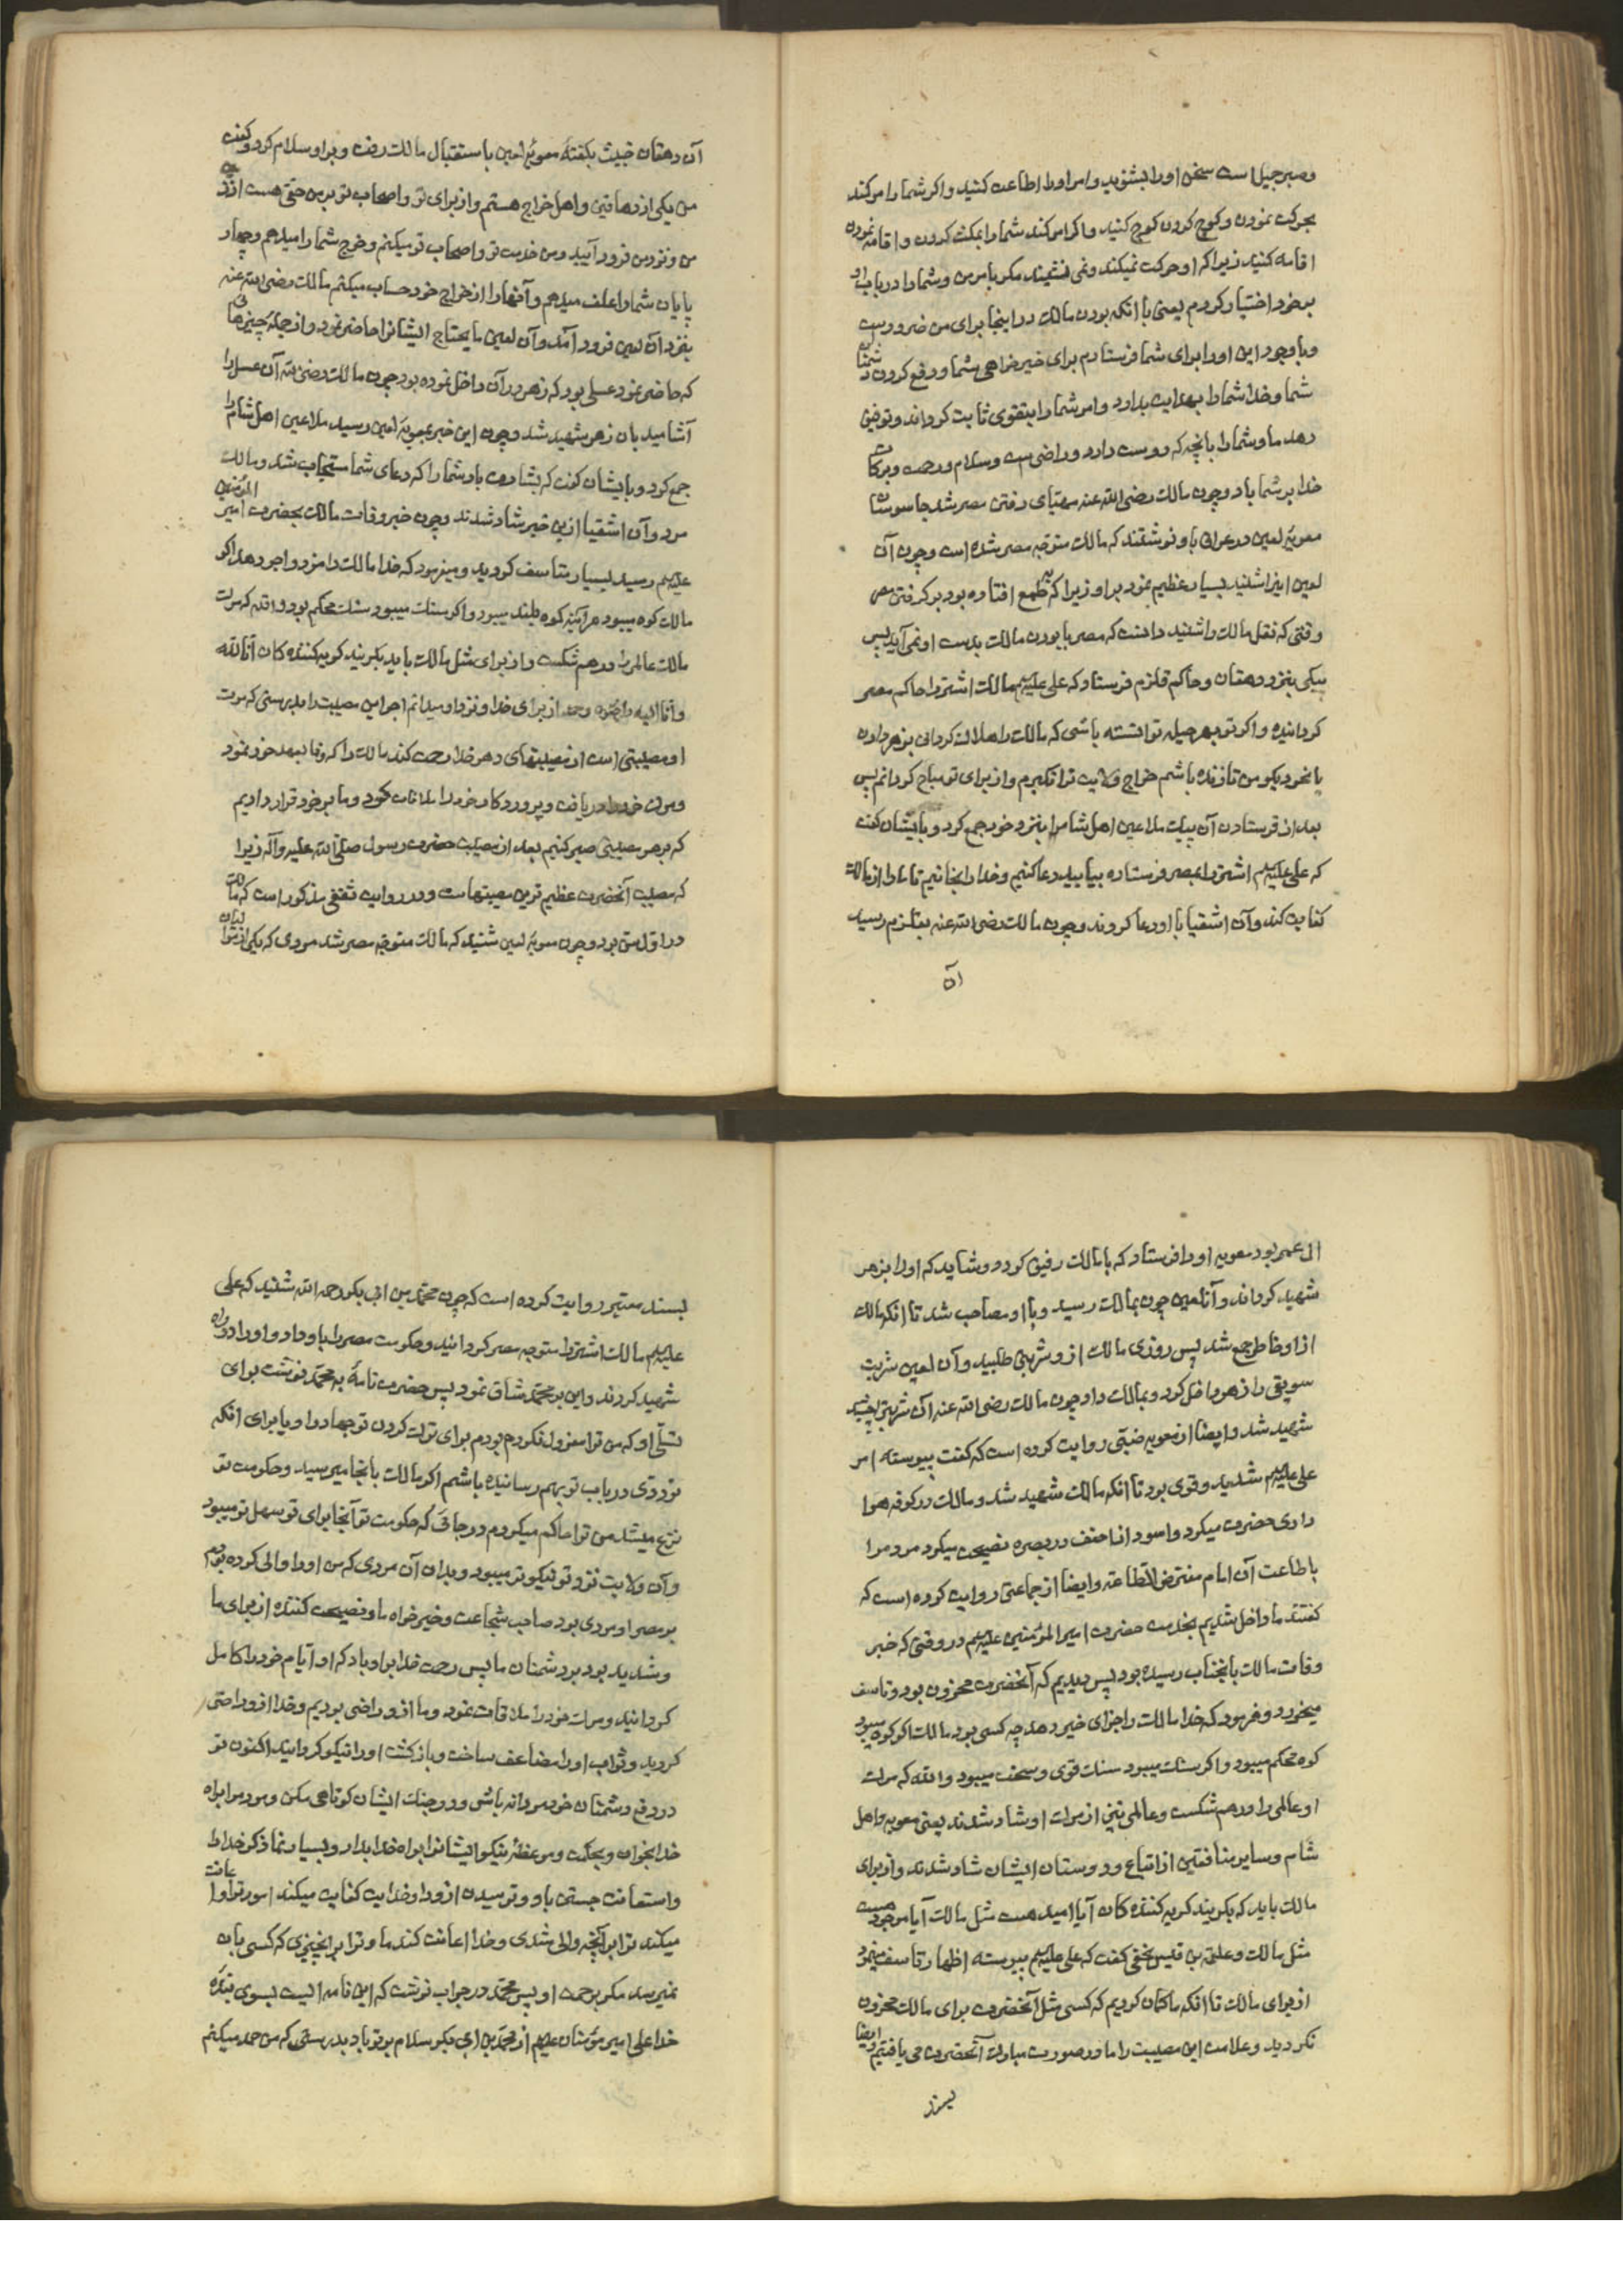 و صبر جمیل است سخن او را بشنوید و امر او را اطاعت کنید و اگر شما را امر کند
بحرکت نمودن و کوچ کردن کوچ کنید و اگر امر کند شما را بمکث کردن و اقامه نمودن
اقامه کنید زیرا که او حرکت نمیکند و نمی مکر بامر من و شما را در باب او
بر خود اختیار کردم یعنی با انکه بودن مالک در اینجا برای من ضرور است
و با وجود این او را برای شما فرستادم برای خیر خواهی شما و دفع کردن دشمنان
شما و خدا شما را بهدایت بدارد و امر شما را بتقوی ثابت کرداند و توفیق
دهد ما و شما را بانچه که دوست دارد و راضی است و سلام و رحمت و برکات
خدا بر شما باد و چون مالک رضی الله عنه مهیای رفتن مصر شد جاسوسان
معویه لعین در عراق باو نوشتند که مالک متوجه مصر شده است و چون آن
لعین اینرا شنید بسیار عظیم نمود بر او زیرا که بطمع افتاده بود بر کرفتن مصر
وقتی که نقل مالک را شنید دانست که مصر با بودن مالک بدست او نمی آید پس
پیکی بنزد دهقان و حاکم قلزم فرستاد که علی علیه السلم مالک اشتر را حاکم مصر
کردانیده و اکر تو بهر حیله توانسته باشی که مالک را هلاک کردانی بزهر دادن
یا بنحو دیکر من تا زنده باشم خراج ولایت ترا نکیرم و از برای تو مباح کردانم پس
بعد از فرستادن آن پیک ملاعین اهل شام را بنزد خود جمع کرد و بایشان کفت
که علی علیه السلم اشتر را بمصر فرستاده بیایید دعا کنیم و خدا را بخوانیم تا ما را از مالک
کفایت کند و آن اشقیا با او دعا کردند و چون مالک رضی الله عنه بقلزم رسید
آن
آن دهقان خبیث بکفته معویه لعین باستقبال مالک رفت و بر او سلام کرد و کفت
من یکی از دهاقین و اهل خراج هستم و از برای تو و اصحاب تو بر من حقی هست از
من و نزد من فرود آیید و من خدمت تو و اصحاب تو میکنم و خرج شما را میدهم و چهار
پایان شما را علف میدهم و آنها را از خراج خود حساب میکنم مالک رضی الله عنه
بنزد آن لعین فرود آمد و آن لعین ما یحتاج ایشانرا حاضر نمود و از جمله چیزهائی
که حاضر نمود عسلی بود که زهر در آن داخل نموده بود چون مالک رضی الله آن عسل را
آشامید بآن زهر شهید شد و چون این خبر بمعویه لعین رسید ملاعین اهل شام را
جمع کرد و بایشان کفت که بشارت باد شما را که دعای شما مستجاب شد و مالک
مرد و آن اشقیا ازین خبر شاد شدند و چون خبر وفات مالک بحضرت امیر المؤمنین
علیه السلم رسید بسیار متاسف کردید و میفرمود که خدا مالک را مزد و اجر دهد اکر
مالک کوه میبود هر آینه کوه بلند میبود و اکر سنک میبود سنک محکم بود والله که موت
مالک عالم را در هم شکست و از برای مثل مالک باید بکریند کریه کننده کان انا لله
و انا الیه راجعون و حمد از برای خدا و نزد او میدانم اجر این مصیبت را بدرستی که موت
او مصیبتی است از مصیبتهای دهر خدا رحمت کند مالک را که وفا بعهد خود نمود
و موت خود را دریافت و پروردکار خود را ملاقات کرد و ما بر خود قرار دادیم
که بر هر مصیبتی صبر کنیم بعد از مصیبت حضرت رسول صلی الله علیه و آله زیرا
که مصیبت آنحضرت عظیم ترین مصیبتهاست و در روایت ثقفی مذکور است که مالک
در اول متن بود و چون معویه لعین شنید که مالک متوجه مصر شد مردی که یکی از نوابان
ال عمر بود معویه او را فرستاد که با مالک رفیق کردد و شاید که او را بزهر
شهید کرداند و آن لعین چون بمالک رسید و با او مصاحب شد تا انکه مالک
از او خاطر جمع شد پس روزی مالک ازو شربتی طلبید و آن لعین شربت
سویقی را زهر داخل کرد و بمالک داد چون مالک رضی الله عنه آن شربتی بچشید
شهید شد و ایضا از مغویه ضبّی روایت کرده است که کفت پیوسته امر
علی علیه السلم شدید و قوی بود تا انکه مالک شهید شد و مالک در کوفه هوا
داری حضرت میکرد و اسود احنف در بصره نصیحت میکرد مردم را
باطاعت آن امام مفترض الطاعه و ایضا از جماعتی روایت کرده است که
کفتند ما داخل شدیم بخدمت حضرت امیر المؤمنین علیه السلم در وقتی که خبر
وفات مالک بآنجناب رسیده بود پس دیدیم که آنحضرت محزون بود و تاسف
میخورد و فرمود که خدا مالک را جزای خیر دهد چه کسی بود مالک اکر کوه میبود
کوه محکم میبود و اکر سنک میبود سنک قوی و سخت میبود والله که موت
او عالمی را در هم شکست و عالمی نیز از موت او شاد شدند یعنی معویه و اهل
شام و سایر منافقین از اتباع و دوستان ایشان شاد شدند و از برای
مالک باید که بکریند کریه کننده کان آیا امید هست مثل مالک آیا موجود هست
مثل مالک و علقمة بن قیس نخعی کفت که علی علیه السلم پیوسته اظهار تاسف مینمود
از برای مالک تا انکه ما کمان کردیم که کسی مثل آنحضرت برای مالک محزون
نکردید و علامت این مصیبت را ما در صورت مبارک آنحضرت می یافتیم و ایضا
بسند
بسند معتبر روایت کرده است که چون محمد بن ابی بکر رحمه الله شنید که علی
علیه السلم مالک اشتر را متوجه مصر کردانید و حکومت مصر را باو داد و او را در راه
شهید کردند و این بر محمد شاق نمود پس حضرت نامه به محمد نوشت برای
تسلّی او که من ترا معزول نکرده بودم برای ترک کردن تو جهاد را و یا برای انکه
ترددی در باب تو بهم رسانیده باشم اکر مالک بانجا میرسید و حکومت تو
نزع میشد من ترا حاکم میکردم در جائی که حکومت تو آنجا برای تو سهل تر میبود
و آن ولایت نزد تو نیکوتر میبود و بدان آن مردی که من او را والی کرده بودم
بر مصر او مردی بود صاحب شجاعت و خیر خواه ما و نصیحت کننده از برای ما
و شدید بود بر دشمنان ما پس رحمت خدا بر او باد که او ایام خود را کامل
کردانید و موت خود را ملاقات نمود و ما ازو راضی بودیم و خدا ازو راضی
کردید و ثواب او را مضاعف ساخت و بازکشت او را نیکو کردانید اکنون تو
در دفع دشمنان خود مردانه باش و در جنک ایشان کوتاهی مکن و مردم را براه
خدا بخوان و بحکمت و موعظه نیکو ایشانرا براه خدا بدار و بسیار نما ذکر خدا را
و استعانت جستن باو و ترسیدن ازو را و خدایت کفایت میکند امور ترا و اعانت
میکند ترا بر آنچه والی شدی و خدا اعانت کند ما و ترا بر آنچیزی که کسی بآن
نمیرسد مکر برحمت او پس محمد در جواب نوشت که این نامه ایست بسوی بنده
خدا علی امیر مؤمنان علیه السلم از محمد بن ابی بکر سلام بر تو باد بدرستی که من حمد میکنم